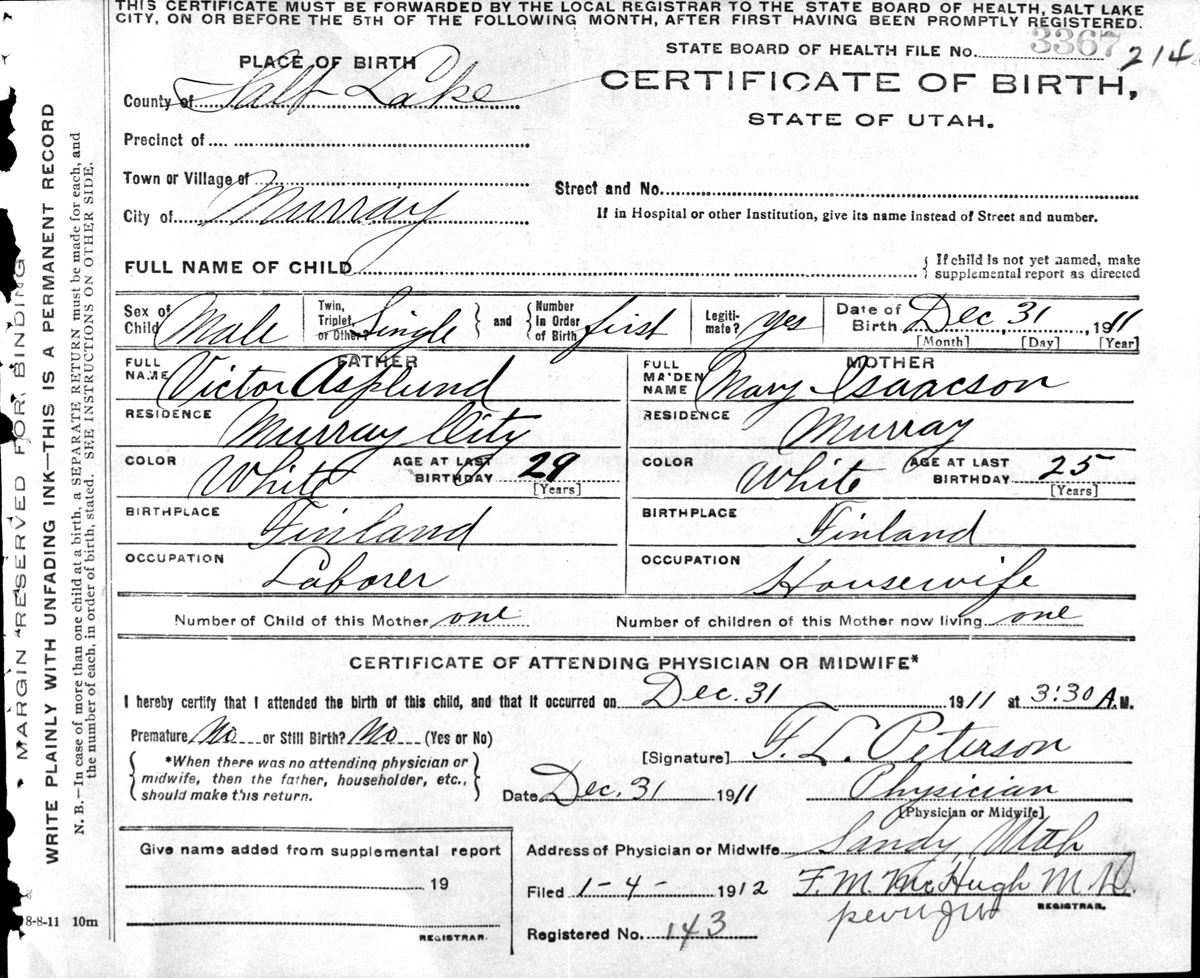 THIS CERTIFICATE MUST BE FORWARDED BY THE LOCAL REGISTRAR TO THE STATE BOARD OF HEALTH, SALT LAKE
CITY, ON OR BEFORE THE 5TH OF THE FOLLOWING MONTH, AFTER FIRST HAVING BEEN PROMPTLY REGISTERED.
STATE BOARD OF HEALTH FILE No. 3367 214
PLACE OF BIRTH
CERTIFICATE OF BIRTH,
County of Salt Lake
STATE OF UTAH.
Precinct of
Town or Village of
Street and No.
City of Murray
If in Hospital or other Institution, give its name instead of Street and number.
FULL NAME OF CHILD
{ If child is not yet named, make
supplemental report as directed
Sex of Child Male
Twin, Triplet, or Other? Single } and { Number in Order of Birth first
Legitimate? yes
Date of Birth Dec 31, 1911
[Month] [Day] [Year]
FATHER
FULL NAME Victor Asplund
RESIDENCE Murray City
COLOR White AGE AT LAST BIRTHDAY 29
[Years]
BIRTHPLACE Finland
OCCUPATION Laborer
MOTHER
FULL MAIDEN NAME Mary Isaacson
RESIDENCE Murray
COLOR White AGE AT LAST BIRTHDAY 25
[Years]
BIRTHPLACE Finland
OCCUPATION Housewife
Number of Child of this Mother one Number of children of this Mother now living one
CERTIFICATE OF ATTENDING PHYSICIAN OR MIDWIFE*
I hereby certify that I attended the birth of this child, and that it occurred on Dec. 31 1911 at 3:30 A.M.
Premature No or Still Birth? No (Yes or No)
[Signature] F. L. Peterson
{ *When there was no attending physician or
midwife, then the father, householder, etc.,
should make this return. }
Date Dec. 31 1911 Physician
[Physician or Midwife]
Give name added from supplemental report
19
REGISTRAR.
Address of Physician or Midwife Sandy Utah
Filed 1-4- 1912 F. M. McHugh M.D.
REGISTRAR.
Registered No. 143
8-8-11 10m
MARGIN RESERVED FOR BINDING
WRITE PLAINLY WITH UNFADING INK—THIS IS A PERMANENT RECORD
N. B.—In case of more than one child at a birth, a SEPARATE RETURN must be made for each, and
the number of each, in order of birth, stated. SEE INSTRUCTIONS ON OTHER SIDE.